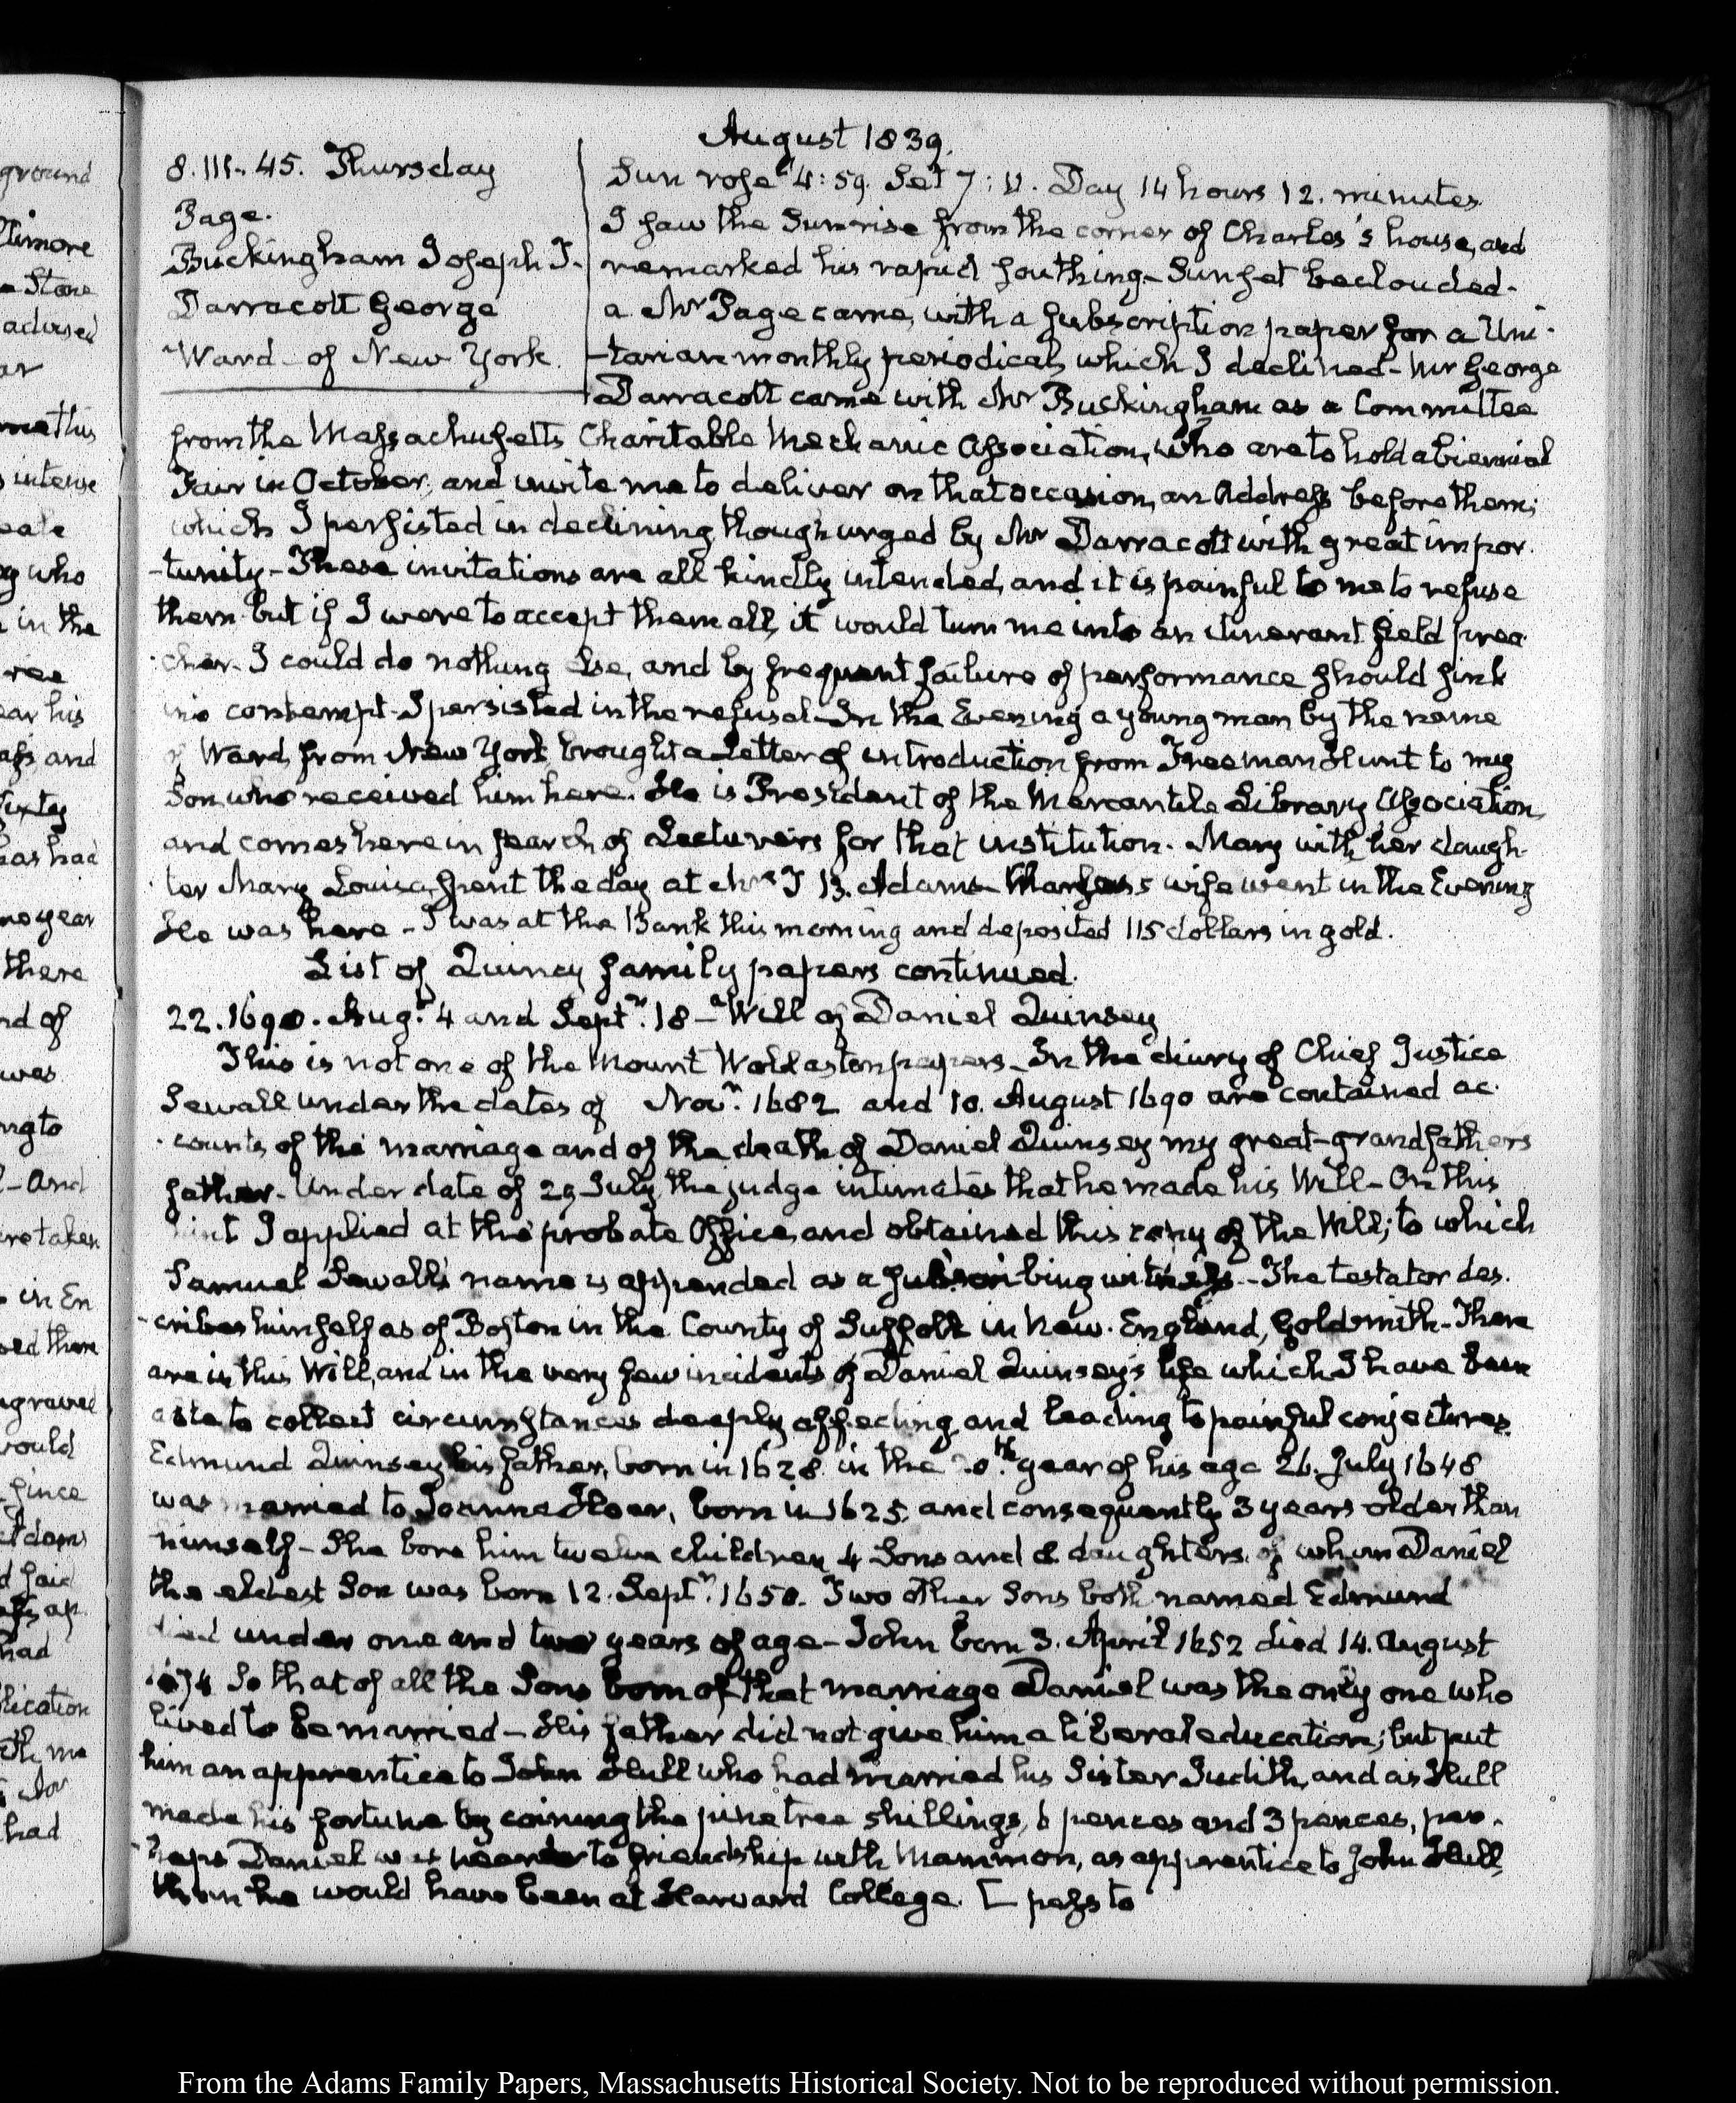 August 1839.
8. III. 45. Thursday
Page.
Buckingham Joseph T.
Darracott George
Ward - of New York.
Sun rose 4:59. Set 7:11. Day 14 hours 12. minutes
I saw the Sun rise from the corner of Charles's house, and
remarked his rapid southing - Sunset beclouded -
a Mr Page came, with a subscription paper for a Uni-
-tarian monthly periodical, which I declined - Mr George
Darracott came with Mr Buckingham as a Committee
from the Massachusetts Charitable Mechanic Association, who are to hold a biennial
Fair in October, and invite me to deliver on that occasion, an Address before them;
which I persisted in declining though urged by Mr Darracott with great impor-
-tunity - These invitations are all kindly intended, and it is painful to me to refuse
them but if I were to accept them all, it would turn me into an itinerant field prea-
-cher - I could do nothing else, and by frequent failure of performance should sink
into contempt - I persisted in the refusal - In the Evening a young man by the name
of Ward, from New York, brought a Letter of introduction from Freeman Hunt to my
Son, who received him here. He is President of the Mercantile Library Association,
and comes here in search of Lecturers for that institution. Mary with her daugh-
-ter Mary Louisa, spent the day at Mrs T. B. Adams - Charles's wife went in the Evening
He was here - I was at the Bank this morning and deposited 115 dollars in gold.
List of Quincy family papers continued.
22. 1690. Aug.t 4 and Sept.r 18 - Will of Daniel Quinsey
This is not one of the Mount Wollaston papers - In the diary of Chief Justice
Sewall under the dates of Nov.r 1682 and 10. August 1690 are contained ac-
-counts of the marriage and of the death of Daniel Quinsey my great-grandfathers
father - Under date of 29 July, the judge intimates that he made his Will - On this
hint I applied at the probate Office, and obtained this copy of the Will; to which
Samuel Sewall's name is appended as a subscribing witness - The testator des-
-cribes himself as of Boston in the County of Suffolk in New-England, Goldsmith - There
are in this Will, and in the very few incidents of Daniel Quinsey's life which I have been
able to collect circumstances deeply affecting, and leading to painful conjectures.
Edmund Quinsey his father, born in 1628 in the 20.th year of his age 26. July 1648
was married to Joanna Hoar, born in 1625. and consequently 3 years older than
himself - She bore him twelve children, 4 Sons and 8 daughters, of whom Daniel
the eldest Son was born 12. Sept.r 1650. Two other Sons both named Edmund
died under one and two years of age - John born 3. April 1652 died 14. August
1674 So that of all the Sons born of that marriage Daniel was the only one who
lived to be married - His father did not give him a liberal education; but put
him an apprentice to John Hull who had married his Sister Judith, and as Hull
made his fortune by coining the pine tree shillings, 6 pences and 3 pences, per-
-haps Daniel was nearer to friendship with Mammon, as apprentice to John Hull,
than he would have been at Harvard College. [ pass to
ground
Stone
advised
ar
intense
who
in the
ear his
and
has had
no year
there
nd of
was
ng to
And
taken
in En
them
graved
would
since
said
had
lication
had
From the Adams Family Papers, Massachusetts Historical Society. Not to be reproduced without permission.